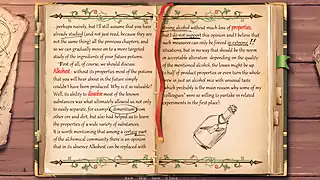 perhaps naively, but I'll still assume that you have
already studied (and not just read, because they are
not the same thing) all the previous chapters, and
so we can gradually move on to a more targeted
study of the ingredients of your future potions.
"First of all, of course, we should discuss
Alkahest - without its properties most of the potions
that you will hear about in the future simply
couldn't have been produced. Why is it so valuable?
Well, its ability to dissolve most of the known
substances was what ultimately allowed us not only
to easily separate, for example,
from other ore and dirt, but also had helped us to learn
the properties of a wide variety of substances.
It is worth mentioning that among a certain part
of the alchemical community there is an opinion
that in its absence Alkahest can be replaced with
strong alcohol without much loss of properties,
but I do not support this opinion and I believe that
such measures can only be forced in extreme !!
situations, but in no way that should be the norm
or acceptable alteration: depending on the quality
of the mentioned alcohol, the losses might be up
to half of product properties or even turn the whole
brew in just an alcohol with unusual taste
(which probably is the main reason why some of my
"colleagues" were so willing to partake in related
experiments in the first place!)
Back Skip Save